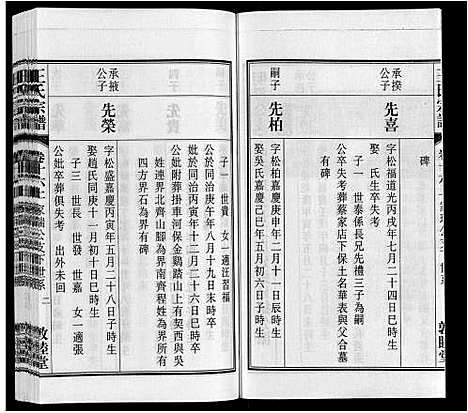 王氏宗譜
敦睦堂
碑
承揆公子
先喜
字松福道光丙戌年七月二十四日亥時生
娶 氏生卒失考
子一 世泰係長兄先禮三子為嗣
公卒失考葬蔡家店下保土名華表與父合墓
有碑
嗣子
先柏
字松 嘉慶庚申年二月十一日辰時生
娶吳氏嘉慶己巳年五月初六日子時生
子一 世貴 女一適汪習福
公於同治庚午年八月十九日末時卒
公妣於同治丙寅年十二月二十六日丑時卒
公妣附葬掛車河保金鷄踏山上有契西與吳
姓為界北齊山腳為界南齊程姓為界所有
四方界石為界有碑
承掖公子
先榮
字松盛嘉慶丙寅年五月二十八日子時生
娶趙氏同庚十一月初十日巳時生
子三 世長 世發 世嘉 女一適張
公妣卒葬俱失考 出外未回
四子
先貴
王氏宗譜
二
敦睦堂